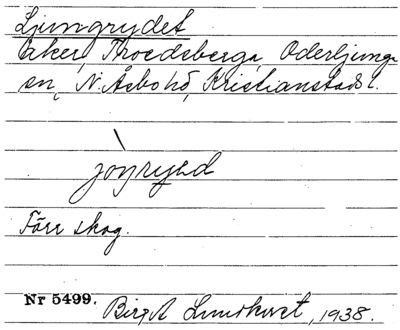 Ljungrydet
Åker, Troedsberga, Oderljunga
sn, N. Åsbo hd, Kristianstads l.
Förr skog.
Nr 5499.
Birgit Lundkvist, 1938.